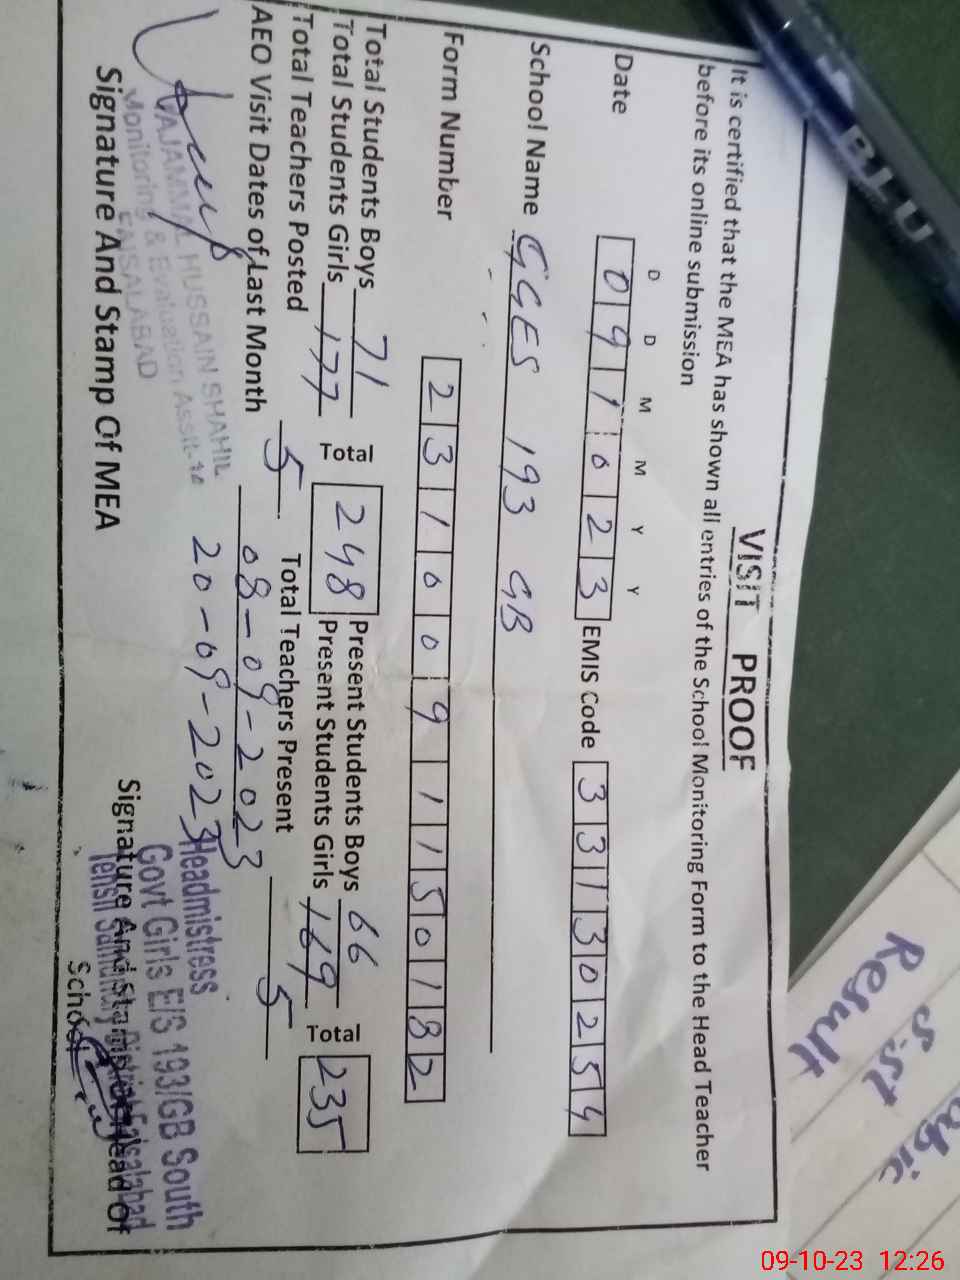 VISIT PROOF
It is certified that the MEA has shown all entries of the School Monitoring Form to the Head Teacher
before its online submission
D D M M Y Y
Date 0 9 1 0 2 3 EMIS Code 3 3 1 3 0 2 5 4
School Name GGES 193 GB
Form Number 2 3 1 0 0 9 1 1 5 0 1 8 2
Total Students Boys 71 Total 248 Present Students Boys 66 Total 235
Total Students Girls 177 Present Students Girls 169
Total Teachers Posted 5 Total Teachers Present 5
AEO Visit Dates of Last Month 08-09-2023
20-09-2023
HUSSAIN SHAHIL
Monitoring & Evaluation Assit-14
FAISALABAD
Signature And Stamp Of MEA
Headmistress
Govt Girls E/S 193/GB South
Tehsil Samundri District Faisalabad
Signature And Stamp Of Head Of
School
BLU
Result
09-10-23 12:26